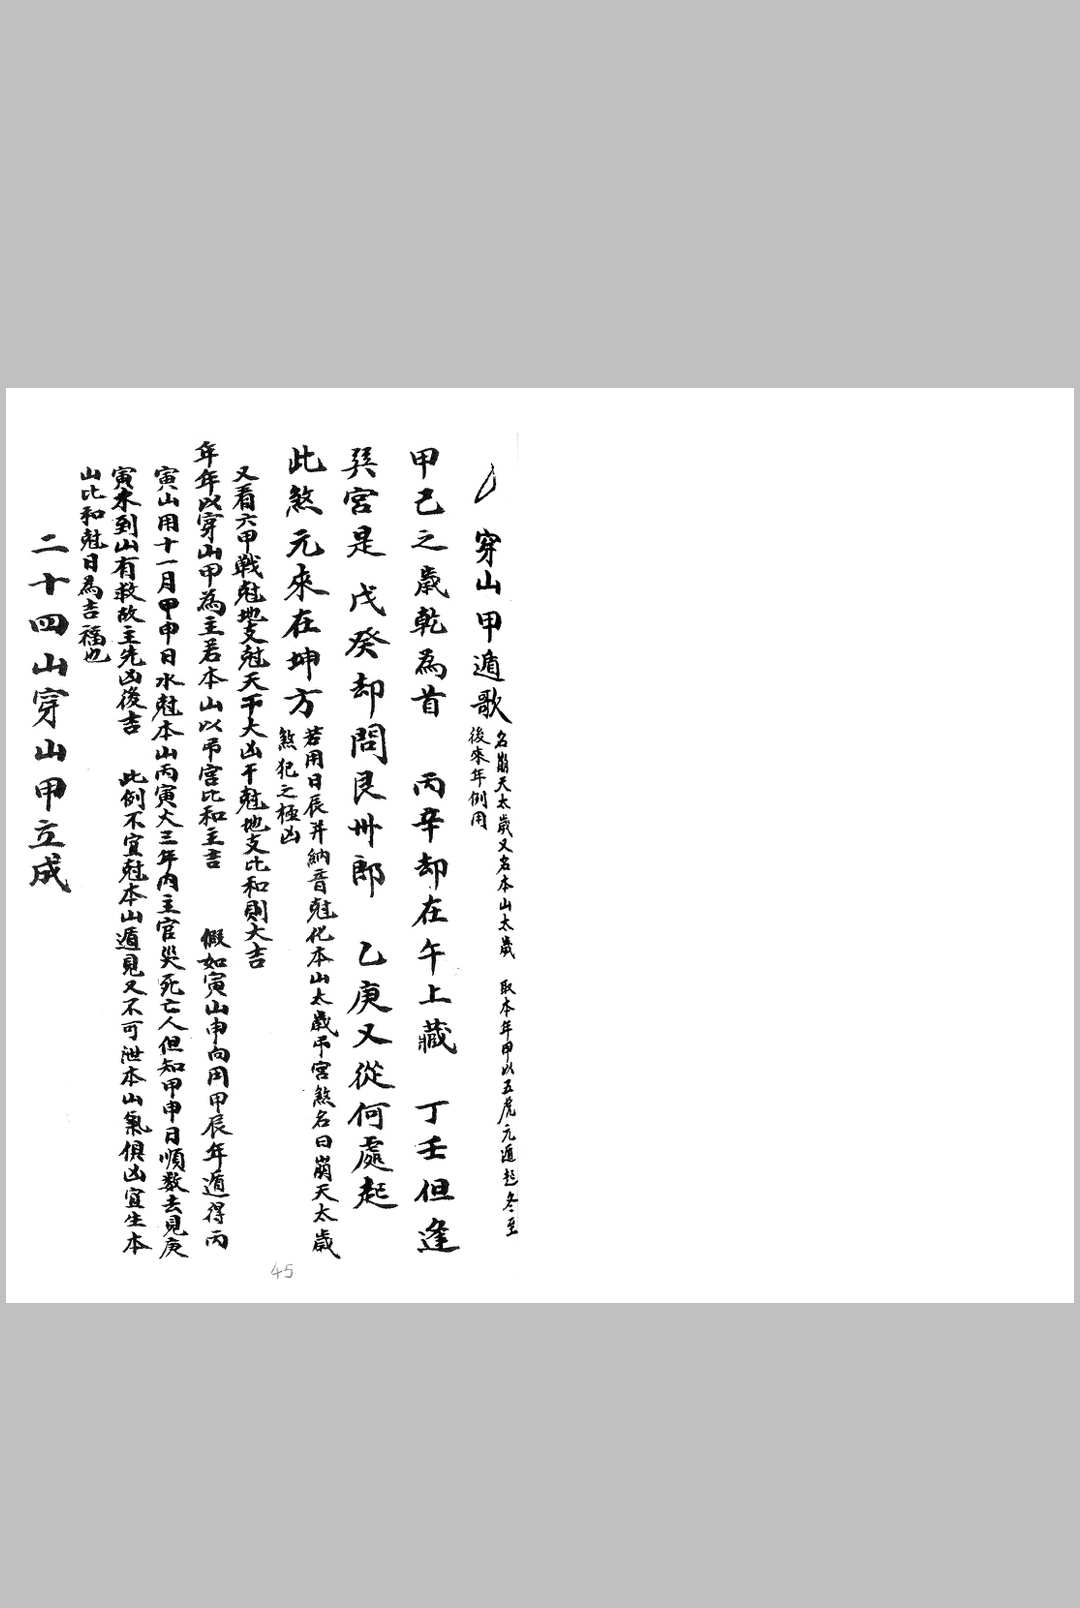 穿山甲遁歌
名崩天太歲又名本山太歲　取本年甲以五虎元遁起冬至
後來年例用
甲己之歲乾為首　丙辛却在午上藏　丁壬但逢
巽宮是　戊癸却問艮卅郎　乙庚又從何處起
此煞元來在坤方
若用日辰并納音尅化本山太歲吊宮煞名曰崩天太歲
煞犯之極凶
又看六甲戰尅地支尅天干大凶干尅地支比和則大吉
年年以穿山甲為主若本山以吊宮比和主吉　假如寅山申向用甲辰年遁得丙
寅山用十一月甲申日水尅本山丙寅火三年內主官災死亡人但知甲申日順数去見庚
寅木到山有救故主先凶後吉　此例不宜尅本山遁見又不可泄本山氣俱凶宜生本
山比和尅日為吉福也
二十四山穿山甲立成
45